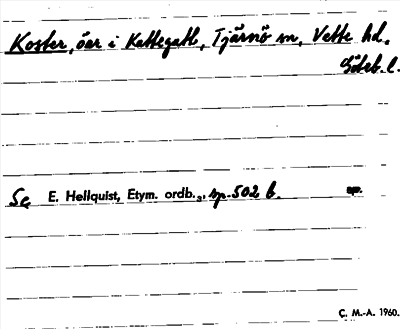 Koster, öar i Kattegatt, Tjärnö sn, Vette hd.
Göteb. l.
Se E. Hellquist, Etym. ordb.3, sp. 502 b. sp.
C. M.-A. 1960.